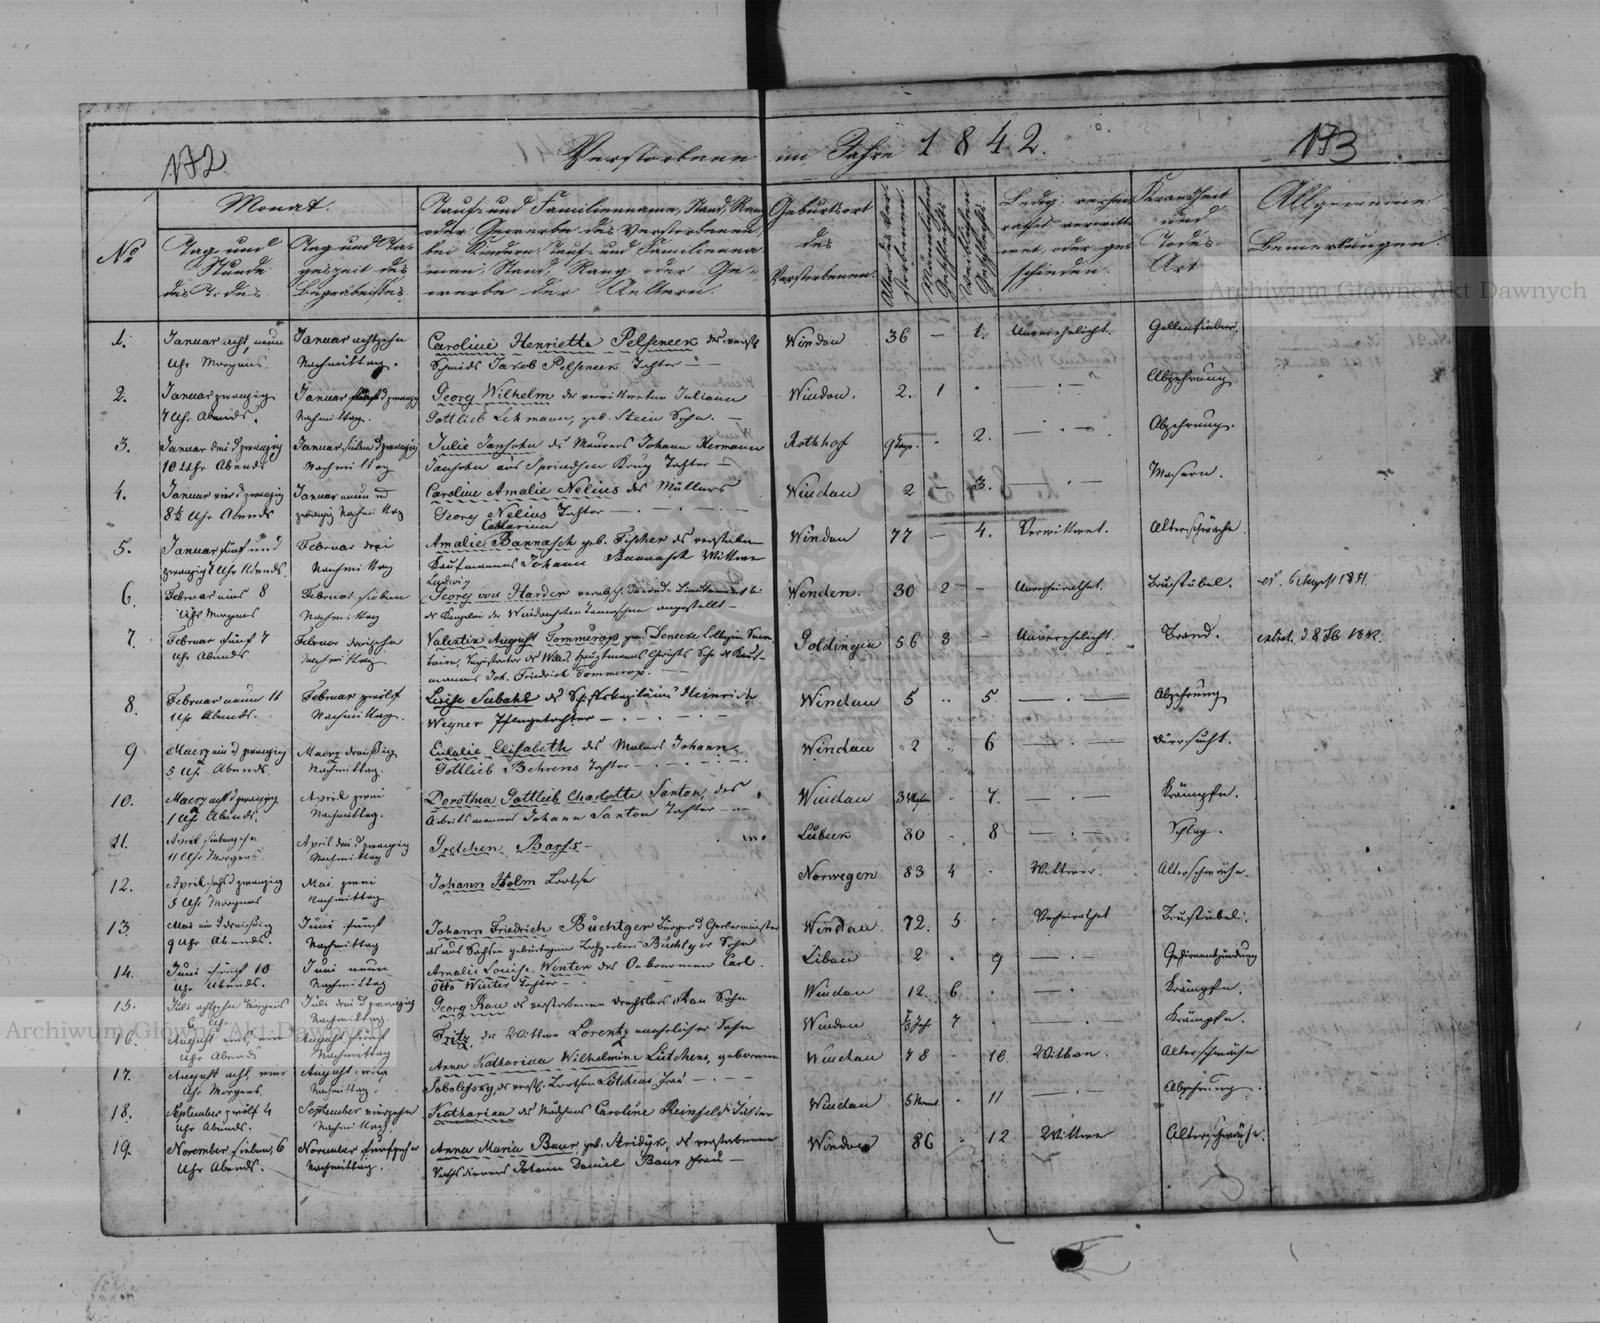 172.
Verstorbene im Jahre 1842.
173
No
Monat.
Tag und Stunde des Todes
Tag und Tageszeit des Begräbnisses
Tauf- und Familienname, Stand, Rang
oder Gewerbe des Verstorbenen,
bei Kindern: Tauf- und Familienna
men, Stand, Rang oder Ge-
werbe der Aeltern.
Geburtsort
des
Verstorbenen.
Alter des Verstorbenen.
Männlichen Geschlechts.
Weiblichen Geschlechts.
Ledig, verhei
rathet, verwitt
wet, oder ge
schieden.
Krankheit
und
Todes-
Art
Allgemeine
Bemerkungen.
1. Januar acht, neun Januar achtzehn Caroline Henriette Pelseneek des verst. Windau 36 — 1. Unverehelicht. Gallenfieber.
Uhr Morgens. Nachmittag. Schmids Jacob Pelseneek Tochter —
2. Januar zwanzig Januar Georg Wilhelm der verwittweten Juliana Windau. 2. 1 Abzehrung
7 Uhr Abends. Nachmittag. Gottlieb Lehmann, geb. Stein Sohn. —
3. Januar drei d zwanzig Januar sieben d zwanzig Julie Jansohn des Maurers Johann Hermann Rothhof 9 Tage. 2. Abzehrung.
10 Uhr Abends Nachmittag Jansohn aus Krug Tochter —
4. Januar vier d zwanzig Januar neun u Caroline Amalie Nelius des Müllers Windau 2 — 3. Masern.
8½ Uhr Abends zwanzig Nachmittag Georg Nelius Tochter —
Catharina
5. Januar fünf und Februar drei Amalie Bannasch geb. Fischer des verstorben Windau 77 — 4. Verwittwet. Altersschwäche.
zwanzig 7 Uhr Abends. Nachmittag Kaufmannes Johann Bannasch Wittwe
Ludwig
6. Februar eins 8 Februar sieben Georg von Harder Wenden. 30 2 — Unverheirathet. Brustübel.
Uhr Morgens Nachmittag angestellt —
7. Februar fünf 7 Februar dreizehn Valentin August Tommerop Goldingen 56 3 — Unverehelicht. Brand.
Uhr Abends Nachmittag Registrator des
mannes Joh. Friedrich Tommerop. —
8. Februar neun 11 Februar zwölf Louise Subahl des Schiffskapitäns Heinrich Windau 5 5. Abzehrung
Uhr Abends. Nachmittag. Wegner Pflegetochter —
9 Maerz ein d zwanzig Maerz dreißig Eulalie Elisabeth des Malers Johann Windau 2 6 Dürrsucht.
5 Uhr Abends. Nachmittag. Gottlieb Behrens Tochter —
10. Maerz acht d zwanzig April zwei Dorothea Gottlieb Charlotte Santon, des Windau 3 Wochen 7. Krämpfe.
1 Uhr Abends. Nachmittag. Arbeitsmannes Johann Santon Tochter —
11. April siebenzehn April drei d zwanzig Gretchen Barss — Lübeck 80 8 Schlag.
11 Uhr Morgens. Nachmittag
12. April sechs d zwanzig Mai zwei Johann Holm Lootse Norwegen 83 4 Wittwer. Altersschwäche.
5 Uhr Morgens Nachmittag
13 Mai ein d dreißig Juni fünf Johann Friedrich Büchtger Bürger d Gerbermeister Windau. 72. 5 Verheirathet Brustübel.
9 Uhr Abends. Nachmittag des aus Sachsen gebürtigen Lohgerbers Büchtger Sohn
14. Juni fünf 10 Juni neun Amalie Louise Winter des Oekonomen Carl Libau 2 9 Gehirnentzündung
Uhr Abends. Nachmittag Otto Winter Tochter —
15. Juli achtzehn Morgens Juli drei d zwanzig Georg Rau des verstorbenen Drechslers Rau Sohn Windau 12. 6 Krämpfe.
6 Uhr. Nachmittag.
16. August eins, August fünf Fritz, der Wittwe Lorentz unehelicher Sohn Windau 7 Krämpfe.
Uhr Abends Nachmittag
17. August acht, vier August Anna Katharina Wilhelmine Lütchens, geborene Windau 78 10. Wittwe. Altersschwäche
Uhr Morgens Nachmittag. Sobolefsky, des verst. Lootsen Lütchens Frau —
18. September zwölf 4 September vierzehn Katharina des Mädchens Caroline Reinfeld Tochter Windau 5 Monat 11 Abzehrung.
Uhr Abends. Nachmittag
19. November sieben, 6 November fünfzehn Anna Maria Baur geb. Stridzk, des verstorbenen Windau 86 12 Wittwe Altersschwäche.
Uhr Abends. Nachmittag. Johann Daniel Baur Frau —
Archiwum Główne Akt Dawnych
Archiwum Główne Akt Dawnych